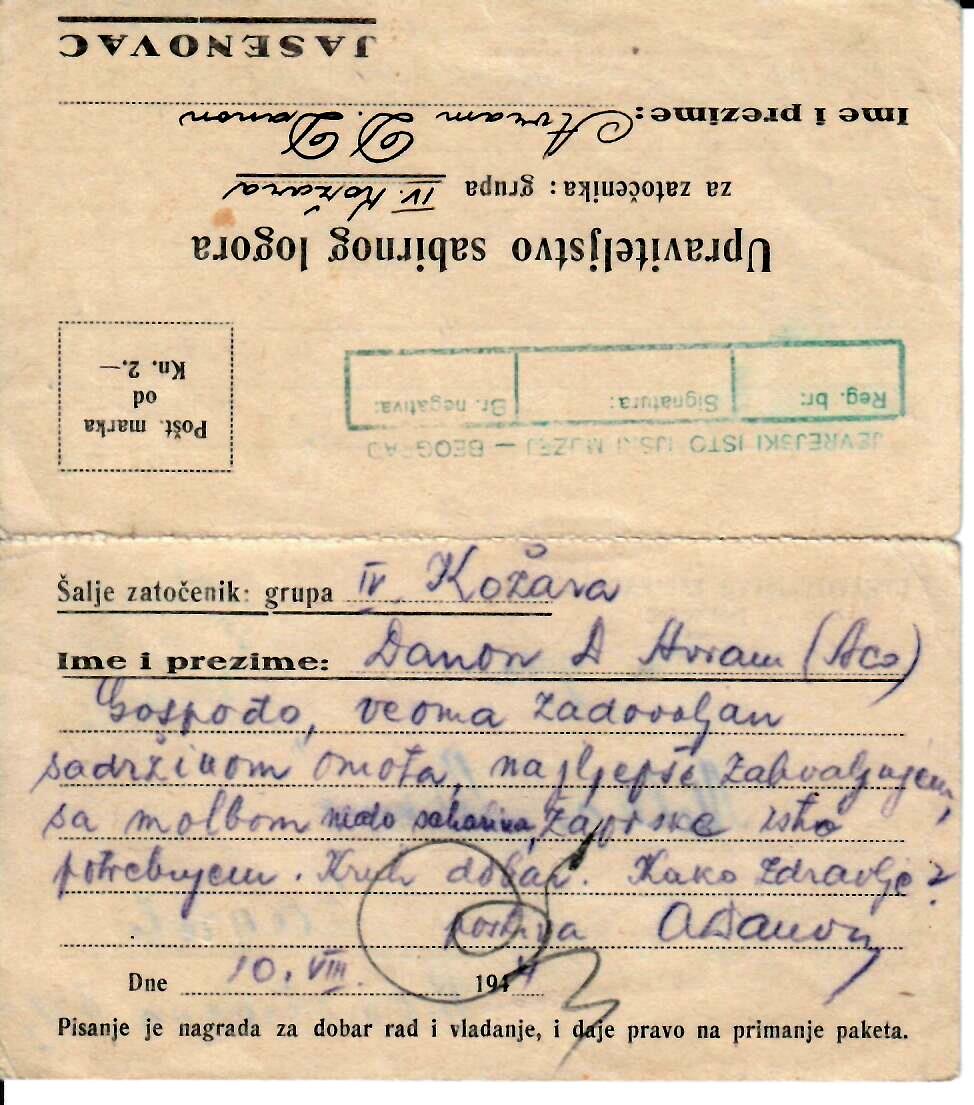 JASENOVAC
Ime i prezime: Avram D. Danon
za zatočenika: grupa IV. Kožara
Upraviteljstvo sabirnog logora
Pošt. marka
od
Kn. 2.—
Reg. br: Signatura: Br. negativa:
JEVREJSKI ISTO MUZEJ — BEOGRAD
Šalje zatočenik: grupa IV Kožara
Ime i prezime: Danon D Avram (Aco)
Gospođo, veoma zadovoljan
sadržinom omota, najljepše zahvaljujem,
sa molbom saharina, isto
potrebujem. Kruh dobar. Kako zdravlje?
pozdiva ADanon
Dne 10. VIII. 1944
Pisanje je nagrada za dobar rad i vladanje, i daje pravo na primanje paketa.